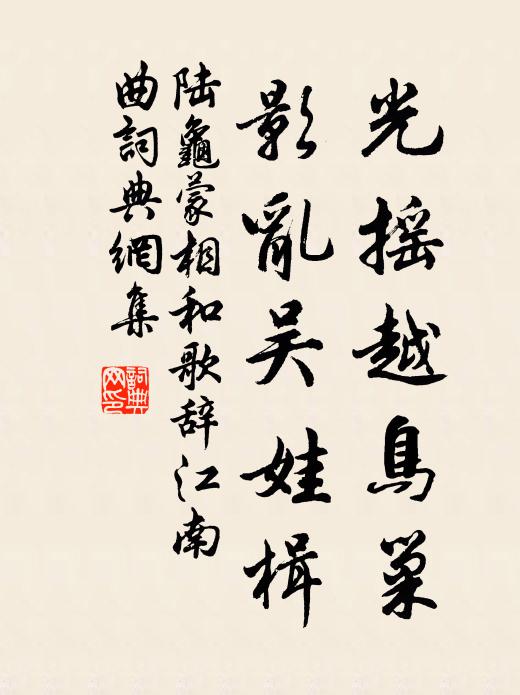 光摇越鳥巢
影亂吴娃楫
陆龜蒙相和歌辞江南
曲詞典網集
詞典网印